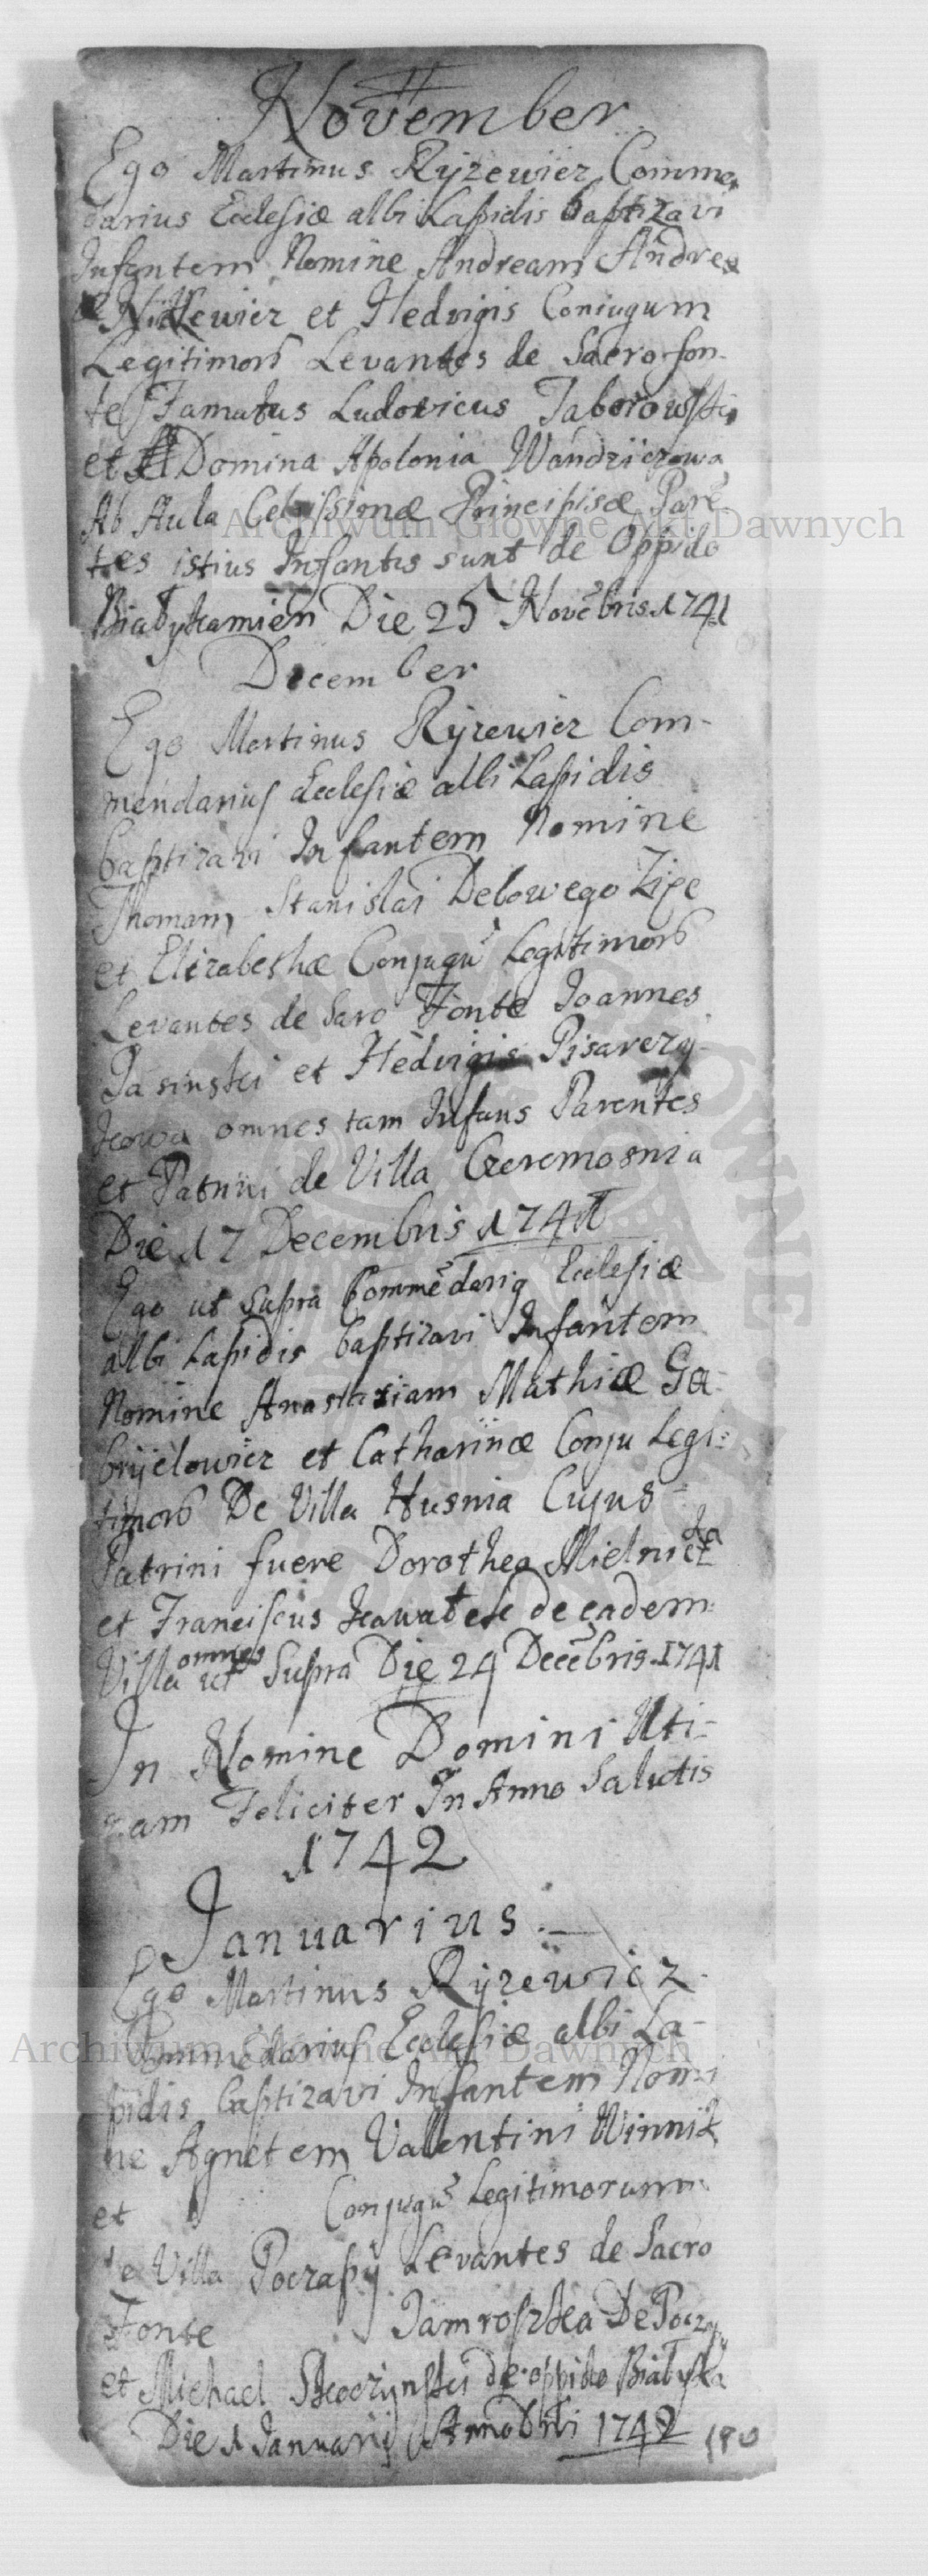 November
Ego Martinus Ryzewicz Commen
darius Ecclesiæ albi Lapidis baptizavi
Infantem Nomine Andream Andreæ
et Hedvigis Coniugum
Legitimorũ Levantes de Sacro fon-
te Famatus Ludovicus Taborowski
et Domina Apolonia Wandziczowa
Ab Aula Celsissimæ Principisæ Parẽ
tes istius Infantis sunt de Oppido
Białykamien Die 25 Novẽbris 1741
December
Ego Martinus Ryzewicz Com-
mendarius Ecclesiæ albi Lapidis
baptizavi Infantem Nomine
Thomam Stanislai Debowego
et Elizabethæ Conjugũ Legitimorũ
Levantes de Saro Fonte Joannes
Jasinski et Hedvigis Pisarczy-
kowa omnes tam Infans Parentes
et Patrini de Villa Czeremosnia
Die 17 Decembris 1741
Ego ut supra Commẽdarig Ecclesiæ
albi Lapidis baptizavi Infantem
Nomine Anastasiam Mathiæ Ga-
bryelowicz et Catharinæ Conju Legi-
timorũ De Villa Husnia Cujus
Patrini fuere Dorothea Mielnicz
ka
et Franciscus de eadem
Villa omnes ut Supra Die 24 Decẽbris 1741
In Nomine Domini Uti-
nam Feliciter In Anno Salutis
1742
Januarius
Ego Martinus Ryzewicz
Commẽdarius Ecclesiæ albi La-
pidis baptizavi Infantem Nomi
ne Agnetem Vallentini Winnik
et Conjugũ Legitimorum
de Villa Poczapy Levantes de Sacro
Fonte Jamroszka De
et Michael Skoczynski de oppido
Die 1 Januarij Anno Dñi 1742
Archiwum Główne Akt Dawnych
Archiwum Główne Akt Dawnych